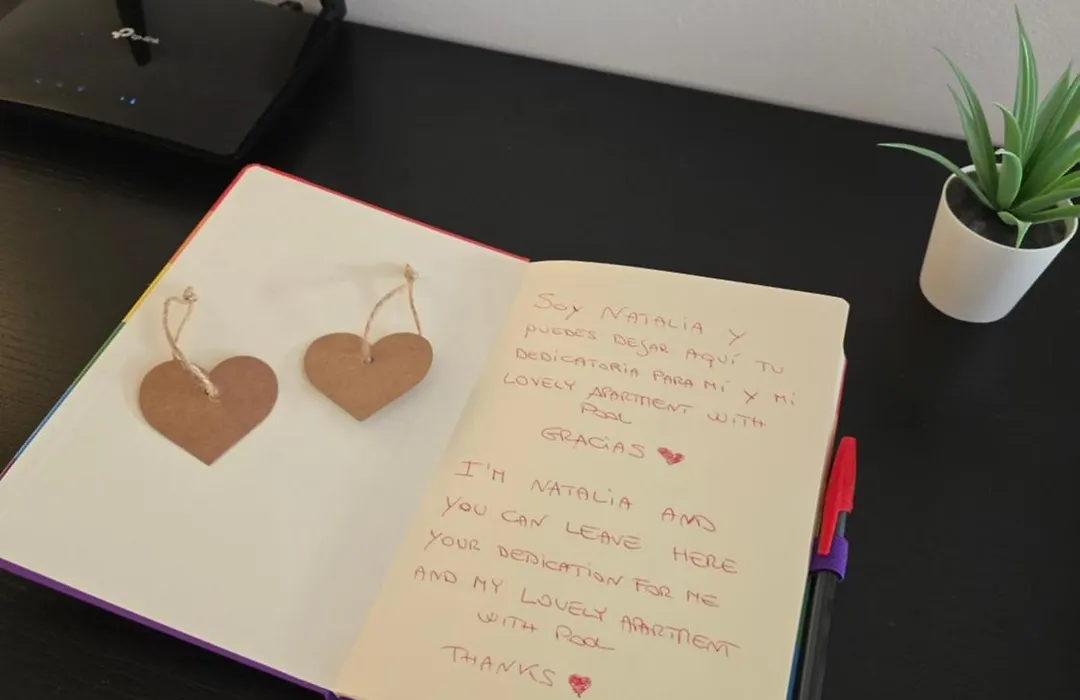 tp-link
SOY NATALIA Y
PUEDES DEJAR AQUÍ TU
DEDICATORIA PARA MÍ Y MI
LOVELY APARTMENT WITH
POOL
GRACIAS ♥
I'M NATALIA AND
YOU CAN LEAVE HERE
YOUR DEDICATION FOR ME
AND MY LOVELY APARTMENT
WITH POOL
THANKS ♥